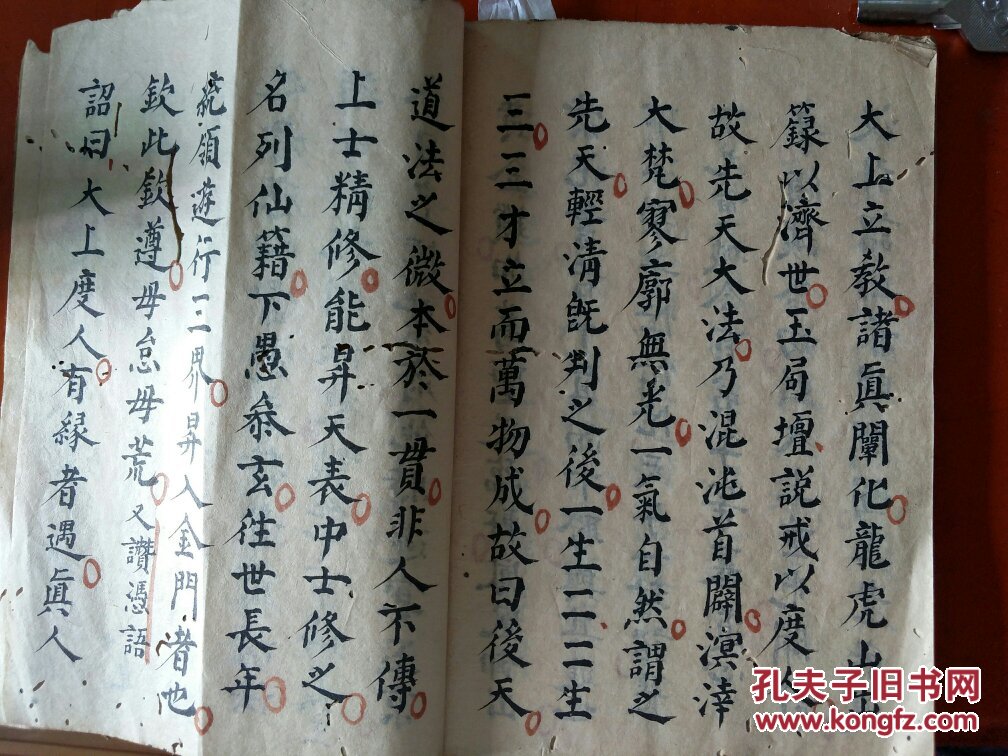 大上立教諸眞闡化龍虎山
籙以濟世玉局壇說戒以度人
故先天大法乃混沌首闢溟涬
大梵寥廓無光一氣自然謂之
先天輕清既判之後一生二二生
三三才立而萬物成故曰後天
道法之微本於一貫非人不傳
上士精修能昇天表中士修之
名列仙籍下愚叅玄往世長年
統領遊行三界昇入金門者也
欽此欽遵毋怠毋荒又讚憑語
詔曰大上度人有緣者遇眞人
孔夫子旧书网
www.kongfz.com